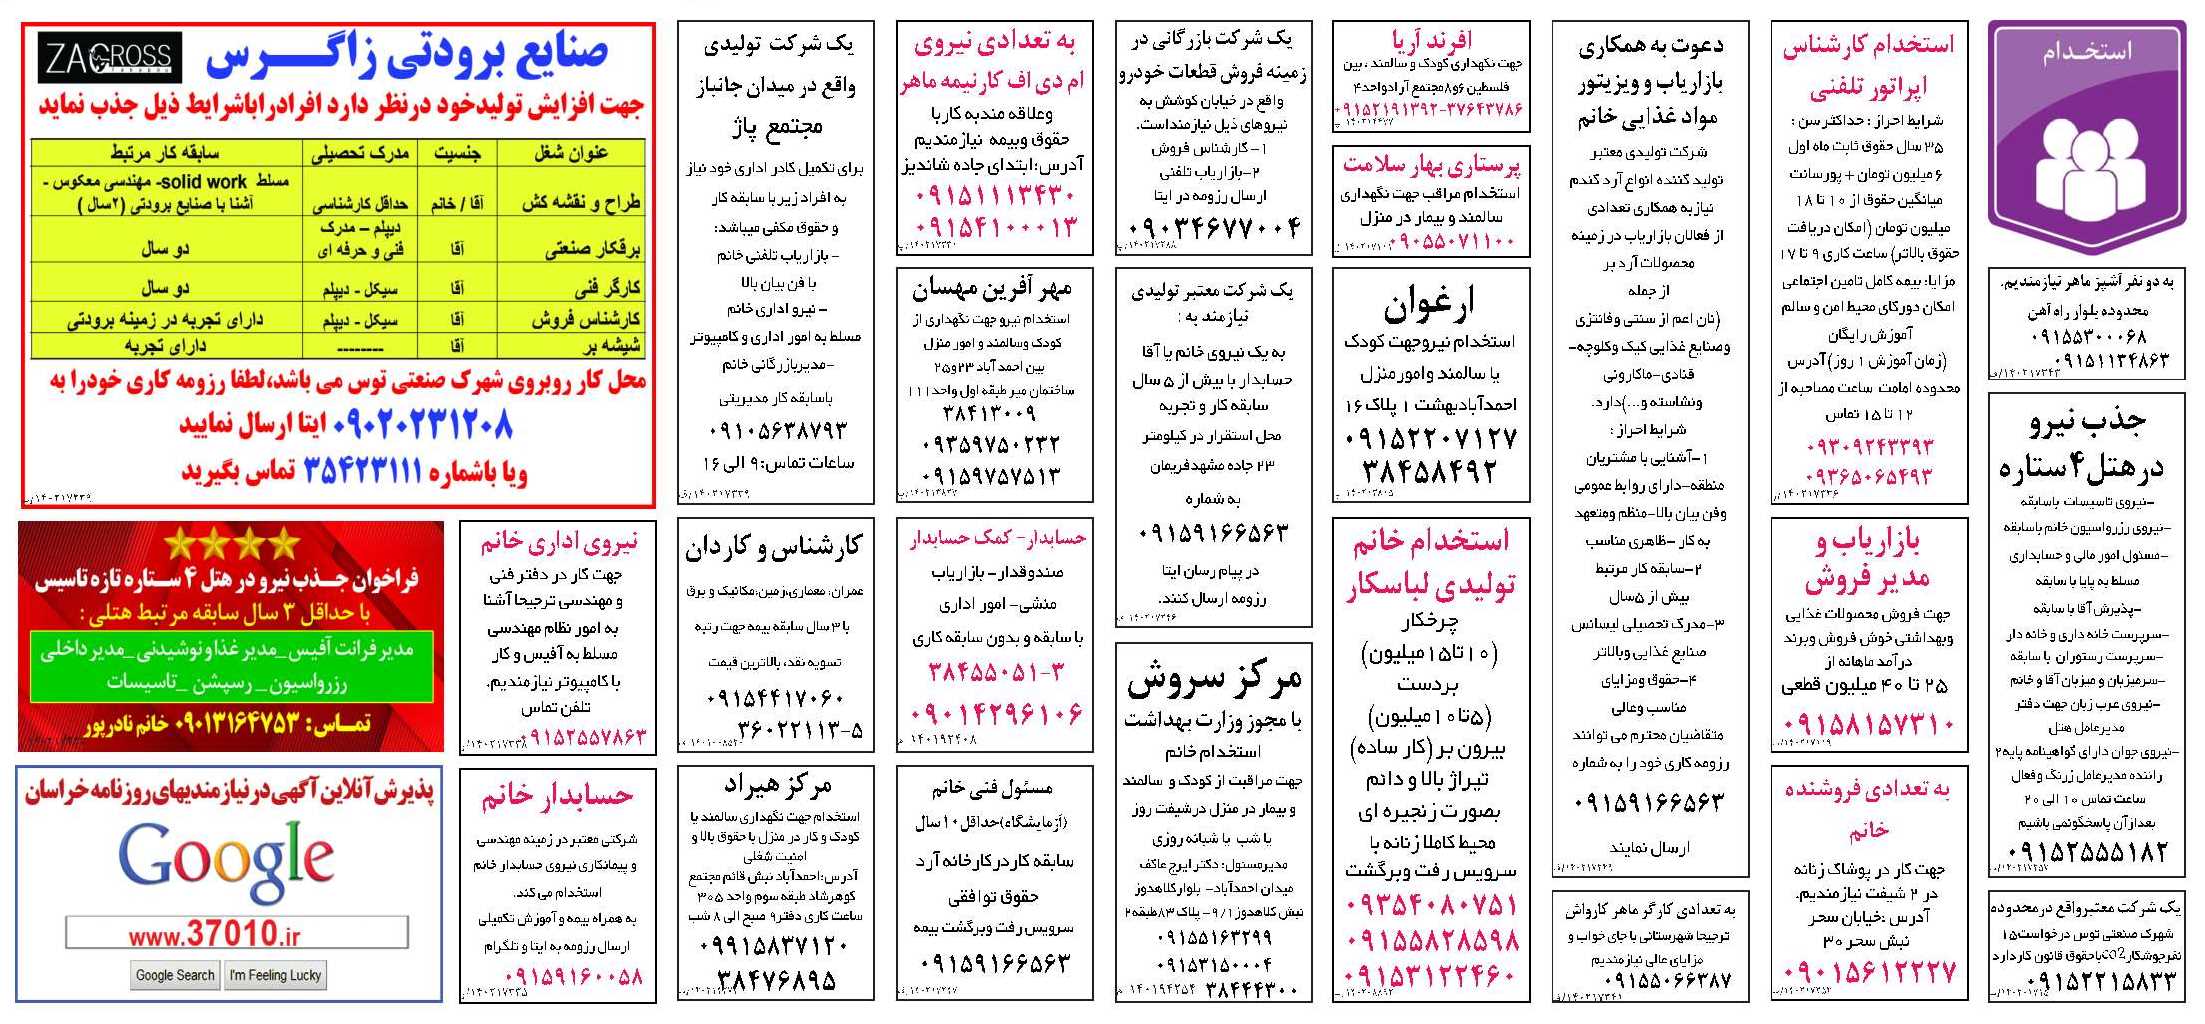 استخدام
به دو نفر آشپز ماهر نیازمندیم.
محدوده بلوار راه آهن
۰۹۱۵۵۳۰۰۰۶۸
۰۹۱۵۱۱۳۴۸۶۳
جذب نیرو
در هتل ۴ ستاره
-نیروی تاسیسات باسابقه
-نیروی رزرواسیون خانم باسابقه
-مسئول امور مالی و حسابداری
مسلط به پایا با سابقه
-پذیرش آقا با سابقه
-سرپرست خانه داری و خانه دار
-سرپرست رستوران با سابقه
-سرمیزبان و میزبان آقا و خانم
-نیروی عرب زبان جهت دفتر
مدیرعامل هتل
-نیروی جوان دارای گواهینامه پایه۲
راننده مدیرعامل زرنگ وفعال
ساعت تماس ۱۰ الی ۲۰
بعدازآن پاسخگونمی باشیم
۰۹۱۵۲۵۵۵۱۸۲
یک شرکت معتبرواقع درمحدوده
شهرک صنعتی توس درخواست۱۵
نفرجوشکارco2باحقوق قانون کاردارد
۰۹۱۵۲۲۱۵۸۳۳
استخدام کارشناس
اپراتور تلفنی
شرایط احراز : حداکثرسن :
۳۵ سال حقوق ثابت ماه اول
۶ میلیون تومان + پورسانت
میانگین حقوق از ۱۰ تا ۱۸
میلیون تومان (امکان دریافت
حقوق بالاتر) ساعت کاری ۹ تا ۱۷
مزایا: بیمه کامل تامین اجتماعی
امکان دورکای محیط امن و سالم
آموزش رایگان
(زمان آموزش ۱ روز) آدرس
محدوده امامت ساعت مصاحبه از
۱۲ تا ۱۵ تماس
۰۹۳۰۹۲۴۳۳۹۳
۰۹۳۶۵۰۶۵۴۹۳
بازاریاب و
مدیر فروش
جهت فروش محصولات غذایی
وبهداشتی خوش فروش وبرند
درآمد ماهانه از
۲۵ تا ۴۰ میلیون قطعی
۰۹۱۵۸۱۵۷۳۱۰
به تعدادی فروشنده
خانم
جهت کار در پوشاک زنانه
در ۲ شیفت نیازمندیم.
آدرس :خیابان سحر
نبش سحر ۳۰
۰۹۰۱۵۶۱۲۲۲۷
دعوت به همکاری
بازاریاب و ویزیتور
مواد غذایی خانم
شرکت تولیدی معتبر
تولید کننده انواع آرد گندم
نیازبه همکاری تعدادی
از فعالان بازاریاب در زمینه
محصولات آرد بر
از جمله
(نان اعم از سنتی وفانتزی
وصنایع غذایی کیک وکلوچه-
قنادی-ماکارونی
ونشاسته و...)دارد.
شرایط احراز :
۱-آشنایی با مشتریان
منطقه-دارای روابط عمومی
وفن بیان بالا-منظم ومتعهد
به کار -ظاهری مناسب
۲-سابقه کار مرتبط
بیش از ۵سال
۳-مدرک تحصیلی لیسانس
صنایع غذایی وبالاتر
۴-حقوق ومزایای
مناسب وعالی
متقاضیان محترم می توانند
رزومه کاری خود را به شماره
۰۹۱۵۹۱۶۶۵۶۳
ارسال نمایند
به تعدادی کارگر ماهر کارواش
ترجیحا شهرستانی با جای خواب و
مزایای عالی نیازمندیم
۰۹۱۵۵۰۶۶۳۸۷
افرند آریا
جهت نگهداری کودک و سالمند ، بین
فلسطین ۶و۸مجتمع آرادواحد۴
۰۹۱۵۲۱۹۱۳۹۲-۳۷۶۴۳۷۸۶
پرستاری بهار سلامت
استخدام مراقب جهت نگهداری
سالمند و بیمار در منزل
۰۹۰۵۵۰۷۱۱۰۰
ارغوان
استخدام نیروجهت کودک
یا سالمند وامورمنزل
احمدآبادبهشت ۱ پلاک ۱۶
۰۹۱۵۲۲۰۷۱۲۷
۳۸۴۵۸۴۹۲
استخدام خانم
تولیدی لباسکار
چرخکار
(۱۰تا۱۵میلیون)
بردست
(۵تا۱۰میلیون)
بیرون بر(کار ساده)
تیراژ بالا و دائم
بصورت زنجیره ای
محیط کاملا زنانه با
سرویس رفت وبرگشت
۰۹۳۵۴۰۸۰۷۵۱
۰۹۱۵۵۸۲۸۵۹۸
۰۹۱۵۳۱۲۲۴۶۰
یک شرکت بازرگانی در
زمینه فروش قطعات خودرو
واقع در خیابان کوشش به
نیروهای ذیل نیازمنداست.
۱-کارشناس فروش
۲-بازاریاب تلفنی
ارسال رزومه در ایتا
۰۹۰۳۴۶۷۷۰۰۴
یک شرکت معتبر تولیدی
نیازمند به :
به یک نیروی خانم یا آقا
حسابدار با بیش از ۵ سال
سابقه کار و تجربه
محل استقرار در کیلومتر
۲۳ جاده مشهدفریمان
به شماره
۰۹۱۵۹۱۶۶۵۶۳
در پیام رسان ایتا
رزومه ارسال کنند.
مرکز سروش
با مجوز وزارت بهداشت
استخدام خانم
جهت مراقبت از کودک و سالمند
و بیمار در منزل درشیفت روز
یا شب یا شبانه روزی
مدیرمسئول: دکتر ایرج عاکف
میدان احمدآباد- بلوارکلاهدوز
نبش کلاهدوز ۹/۱- پلاک ۸۳طبقه۲
۰۹۱۵۵۱۶۳۲۹۹
۰۹۱۵۳۱۵۰۰۰۴
۳۸۴۴۴۳۰۰
به تعدادی نیروی
ام دی اف کار نیمه ماهر
وعلاقه مندبه کار با
حقوق وبیمه نیازمندیم
آدرس:ابتدای جاده شاندیز
۰۹۱۵۱۱۱۳۴۳۰
۰۹۱۵۴۱۰۰۰۱۳
مهر آفرین مهسان
استخدام نیرو جهت نگهداری از
کودک وسالمند و امور منزل
بین احمد آباد ۲۳و۲۵
ساختمان میر طبقه اول واحد۱۱۱
۳۸۴۱۳۰۰۹
۰۹۳۵۹۷۵۰۲۳۲
۰۹۱۵۹۷۵۷۵۱۳
حسابدار- کمک حسابدار
صندوقدار- بازاریاب
منشی- امور اداری
با سابقه و بدون سابقه کاری
۳۸۴۵۵۰۵۱-۳
۰۹۰۱۴۲۹۶۱۰۶
مسئول فنی خانم
(آزمایشگاه)حداقل۱۰سال
سابقه کاردرکارخانه آرد
حقوق توافقی
سرویس رفت وبرگشت بیمه
۰۹۱۵۹۱۶۶۵۶۳
یک شرکت تولیدی
واقع در میدان جانباز
مجتمع پاژ
برای تکمیل کادر اداری خود نیاز
به افراد زیر با سابقه کار
و حقوق مکفی میباشد:
- بازاریاب تلفنی خانم
با فن بیان بالا
- نیرو اداری خانم
مسلط به امور اداری و کامپیوتر
-مدیربازرگانی خانم
باسابقه کار مدیریتی
۰۹۱۰۵۶۳۸۷۹۳
ساعات تماس: ۹ الی ۱۶
کارشناس و کاردان
عمران، معماری،زمین،مکانیک و برق
با ۳ سال سابقه بیمه جهت رتبه
تسویه نقد، بالاترین قیمت
۰۹۱۵۴۴۱۷۰۶۰
۳۶۰۲۲۱۱۳-۵
مرکز هیراد
استخدام جهت نگهداری سالمند یا
کودک و کار در منزل با حقوق بالا و
امنیت شغلی
آدرس:احمدآباد نبش قائم مجتمع
گوهرشاد طبقه سوم واحد ۳۰۵
ساعت کاری دفتر۹ صبح الی ۸ شب
۰۹۹۱۵۸۳۷۱۲۰
۳۸۴۷۶۸۹۵
ZAGROSS
صنایع برودتی زاگرس
جهت افزایش تولیدخود درنظر دارد افرادراباشرایط ذیل جذب نماید
عنوان شغل جنسیت مدرک تحصیلی سابقه کار مرتبط
طراح و نقشه کش آقا / خانم حداقل کارشناسی مسلط solid work- مهندسی معکوس - آشنا با صنایع برودتی (۲سال )
برقکار صنعتی آقا دیپلم – مدرک فنی و حرفه ای دو سال
کارگر فنی آقا سیکل - دیپلم دو سال
کارشناس فروش آقا سیکل - دیپلم دارای تجربه در زمینه برودتی
شیشه بر آقا -------- دارای تجربه
محل کار روبروی شهرک صنعتی توس می باشد،لطفا رزومه کاری خودرا به
۰۹۰۲۰۲۳۱۲۰۸ ایتا ارسال نمایید
ویا باشماره ۳۵۴۲۳۱۱۱ تماس بگیرید
نیروی اداری خانم
جهت کار در دفتر فنی
و مهندسی ترجیحا آشنا
به امور نظام مهندسی
مسلط به آفیس و کار
با کامپیوتر نیازمندیم.
تلفن تماس
۰۹۱۵۲۵۵۷۸۶۳
حسابدار خانم
شرکتی معتبر در زمینه مهندسی
و پیمانکاری نیروی حسابدار خانم
استخدام می کند.
به همراه بیمه و آموزش تکمیلی
ارسال رزومه به ایتا و تلگرام
۰۹۱۵۹۱۶۰۰۵۸
فراخوان جذب نیرو در هتل ۴ ستاره تازه تاسیس
با حداقل ۳ سال سابقه مرتبط هتلی :
مدیر فرانت آفیس_مدیر غذاونوشیدنی_مدیر داخلی
رزرواسیون_ رسپشن _تاسیسات
تماس: ۰۹۰۱۳۱۶۴۷۵۳ خانم نادرپور
پذیرش آنلاین آگهی در نیازمندیهای روزنامه خراسان
Google
www.37010.ir
Google Search I'm Feeling Lucky